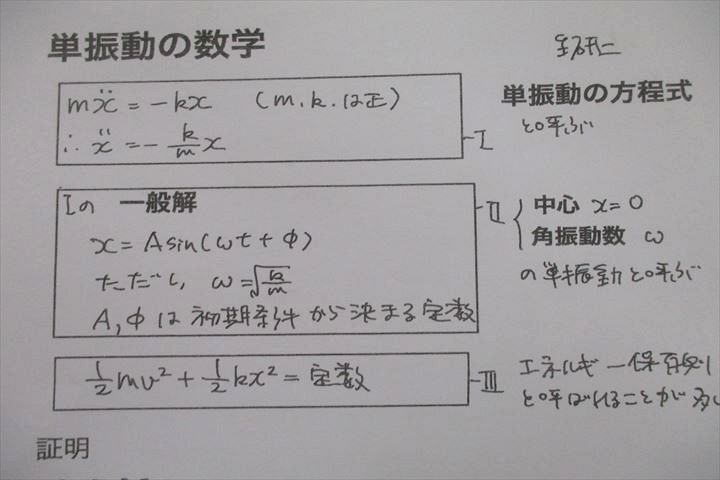 単振動の数学
mẍ = -kx (m.k.は正)
∴ ẍ = - k/m x
I
単振動の方程式
と呼ぶ
Iの 一般解
x = A sin(ωt + φ)
ただし, ω = √(k/m)
A, φ は 初期条件 から 決まる 定数
II
中心 x = 0
角振動数 ω
の単振動と呼ぶ
1/2 mv² + 1/2 kx² = 定数
III
エネルギー保存則
と呼ばれることが多い
証明